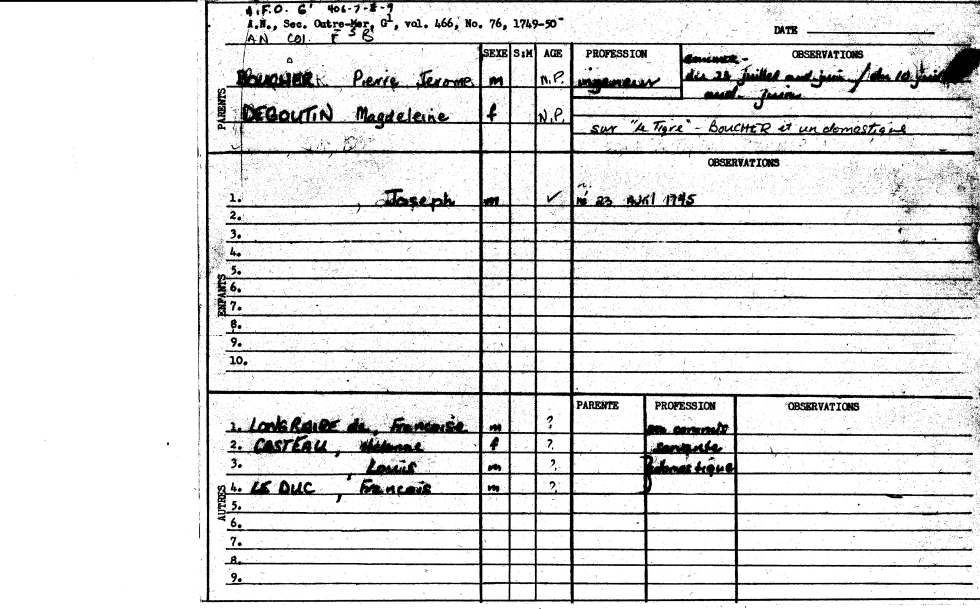 A.F.O. G' 406-7-8-9
A.N., Sec. Outre-Mer, G¹, vol. 466, No. 76, 1749-50
AN COl. F 3 B
DATE
SEXE S:M AGE PROFESSION OBSERVATIONS
PARENTS
BOUCHER Pierre Jerome m N.P. ingenieur des 22 juillet aud. juin / du 10 juil
aud. Juin
DEGOUTIN Magdeleine f N.P. sur "Le Tigre" - BOUCHER et un domestique
OBSERVATIONS
ENFANTS
1. , Joseph m ✓ né 23 Avril 1745
2.
3.
4.
5.
6.
7.
8.
9.
10.
PARENTE PROFESSION OBSERVATIONS
AUTRES
1. LONGRAIRE de, Francoise m ? commis
2. CASTEAU, f ? servante
3. , Louis m ? domestique
4. LE DUC , Francois m ?
5.
6.
7.
8.
9.